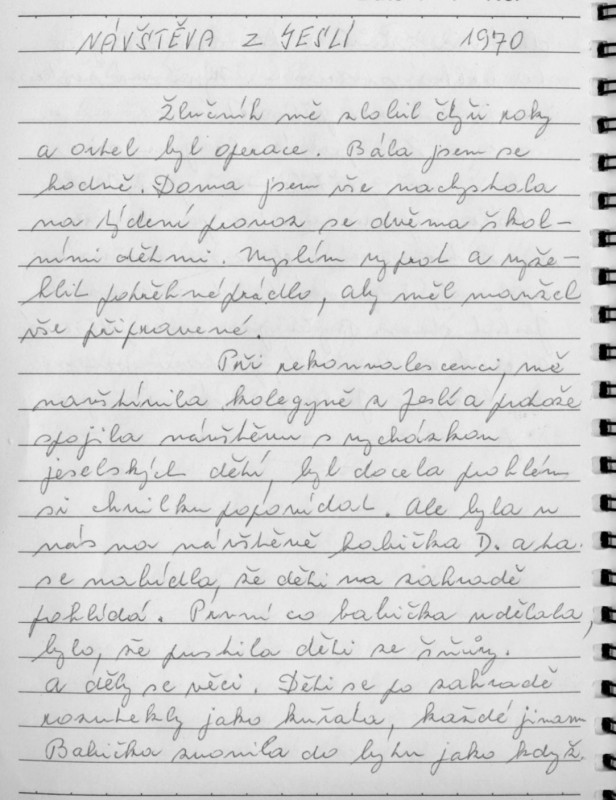 NÁVŠTĚVA Z JESLÍ 1970
Žlučník mě zlobil čtyři roky
a ortel byl operace. Bála jsem se
hodně. Doma jsem vše nachystala
na týdení provoz se dvěma škol-
ními dětmi. Myslím vyprat a vyže-
hlit potřebné prádlo, aby měl manžel
vše připravené.
Při rekonvalescenci, mě
navštívila kolegyně z Jeslí a protože
spojila návštěvu s vycházkou
jeselských dětí, byl docela problém
si chvilku popovídat. Ale byla u
nás na návštěvě babička D. a ta
se nabídla, že děti na zahradě
pohlídá. První co babička udělala,
bylo, že pustila děti ze šňůry.
a děly se věci. Děti se po zahradě
rozutekly jako kuřata, každé jinam
Babička zvonila do bytu jako když.